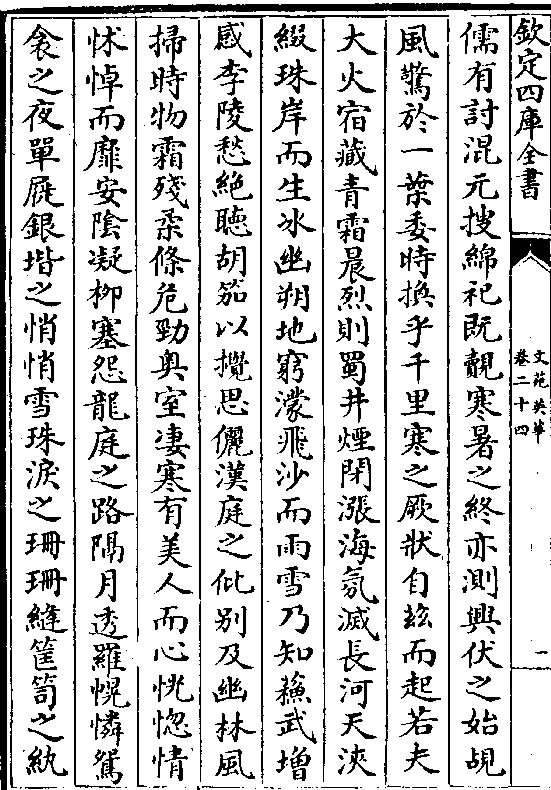 欽定四庫全書
文苑英華
卷二十四
一
儒有討混元搜綿祀既覿寒暑之終亦測興伏之始覘
風驚於一葉委時換乎千里寒之厥狀自兹而起若夫
大火宿藏青霜晨烈則蜀井煙閉漲海氛滅長河天浹
綴珠岸而生冰幽朔地窮濛飛沙而雨雪乃知蘓武增
感李陵愁絶聽胡笳以攪思儷漢庭之仳别及幽林風
掃時物霜殘柔條危勁奥室凄寒有美人而心恍惚情
怵悼而靡安陰凝栁塞怨龍庭之路隔月透羅幌憐鴛
衾之夜單屣銀堦之悄悄雪珠淚之珊珊縫筐笥之紈